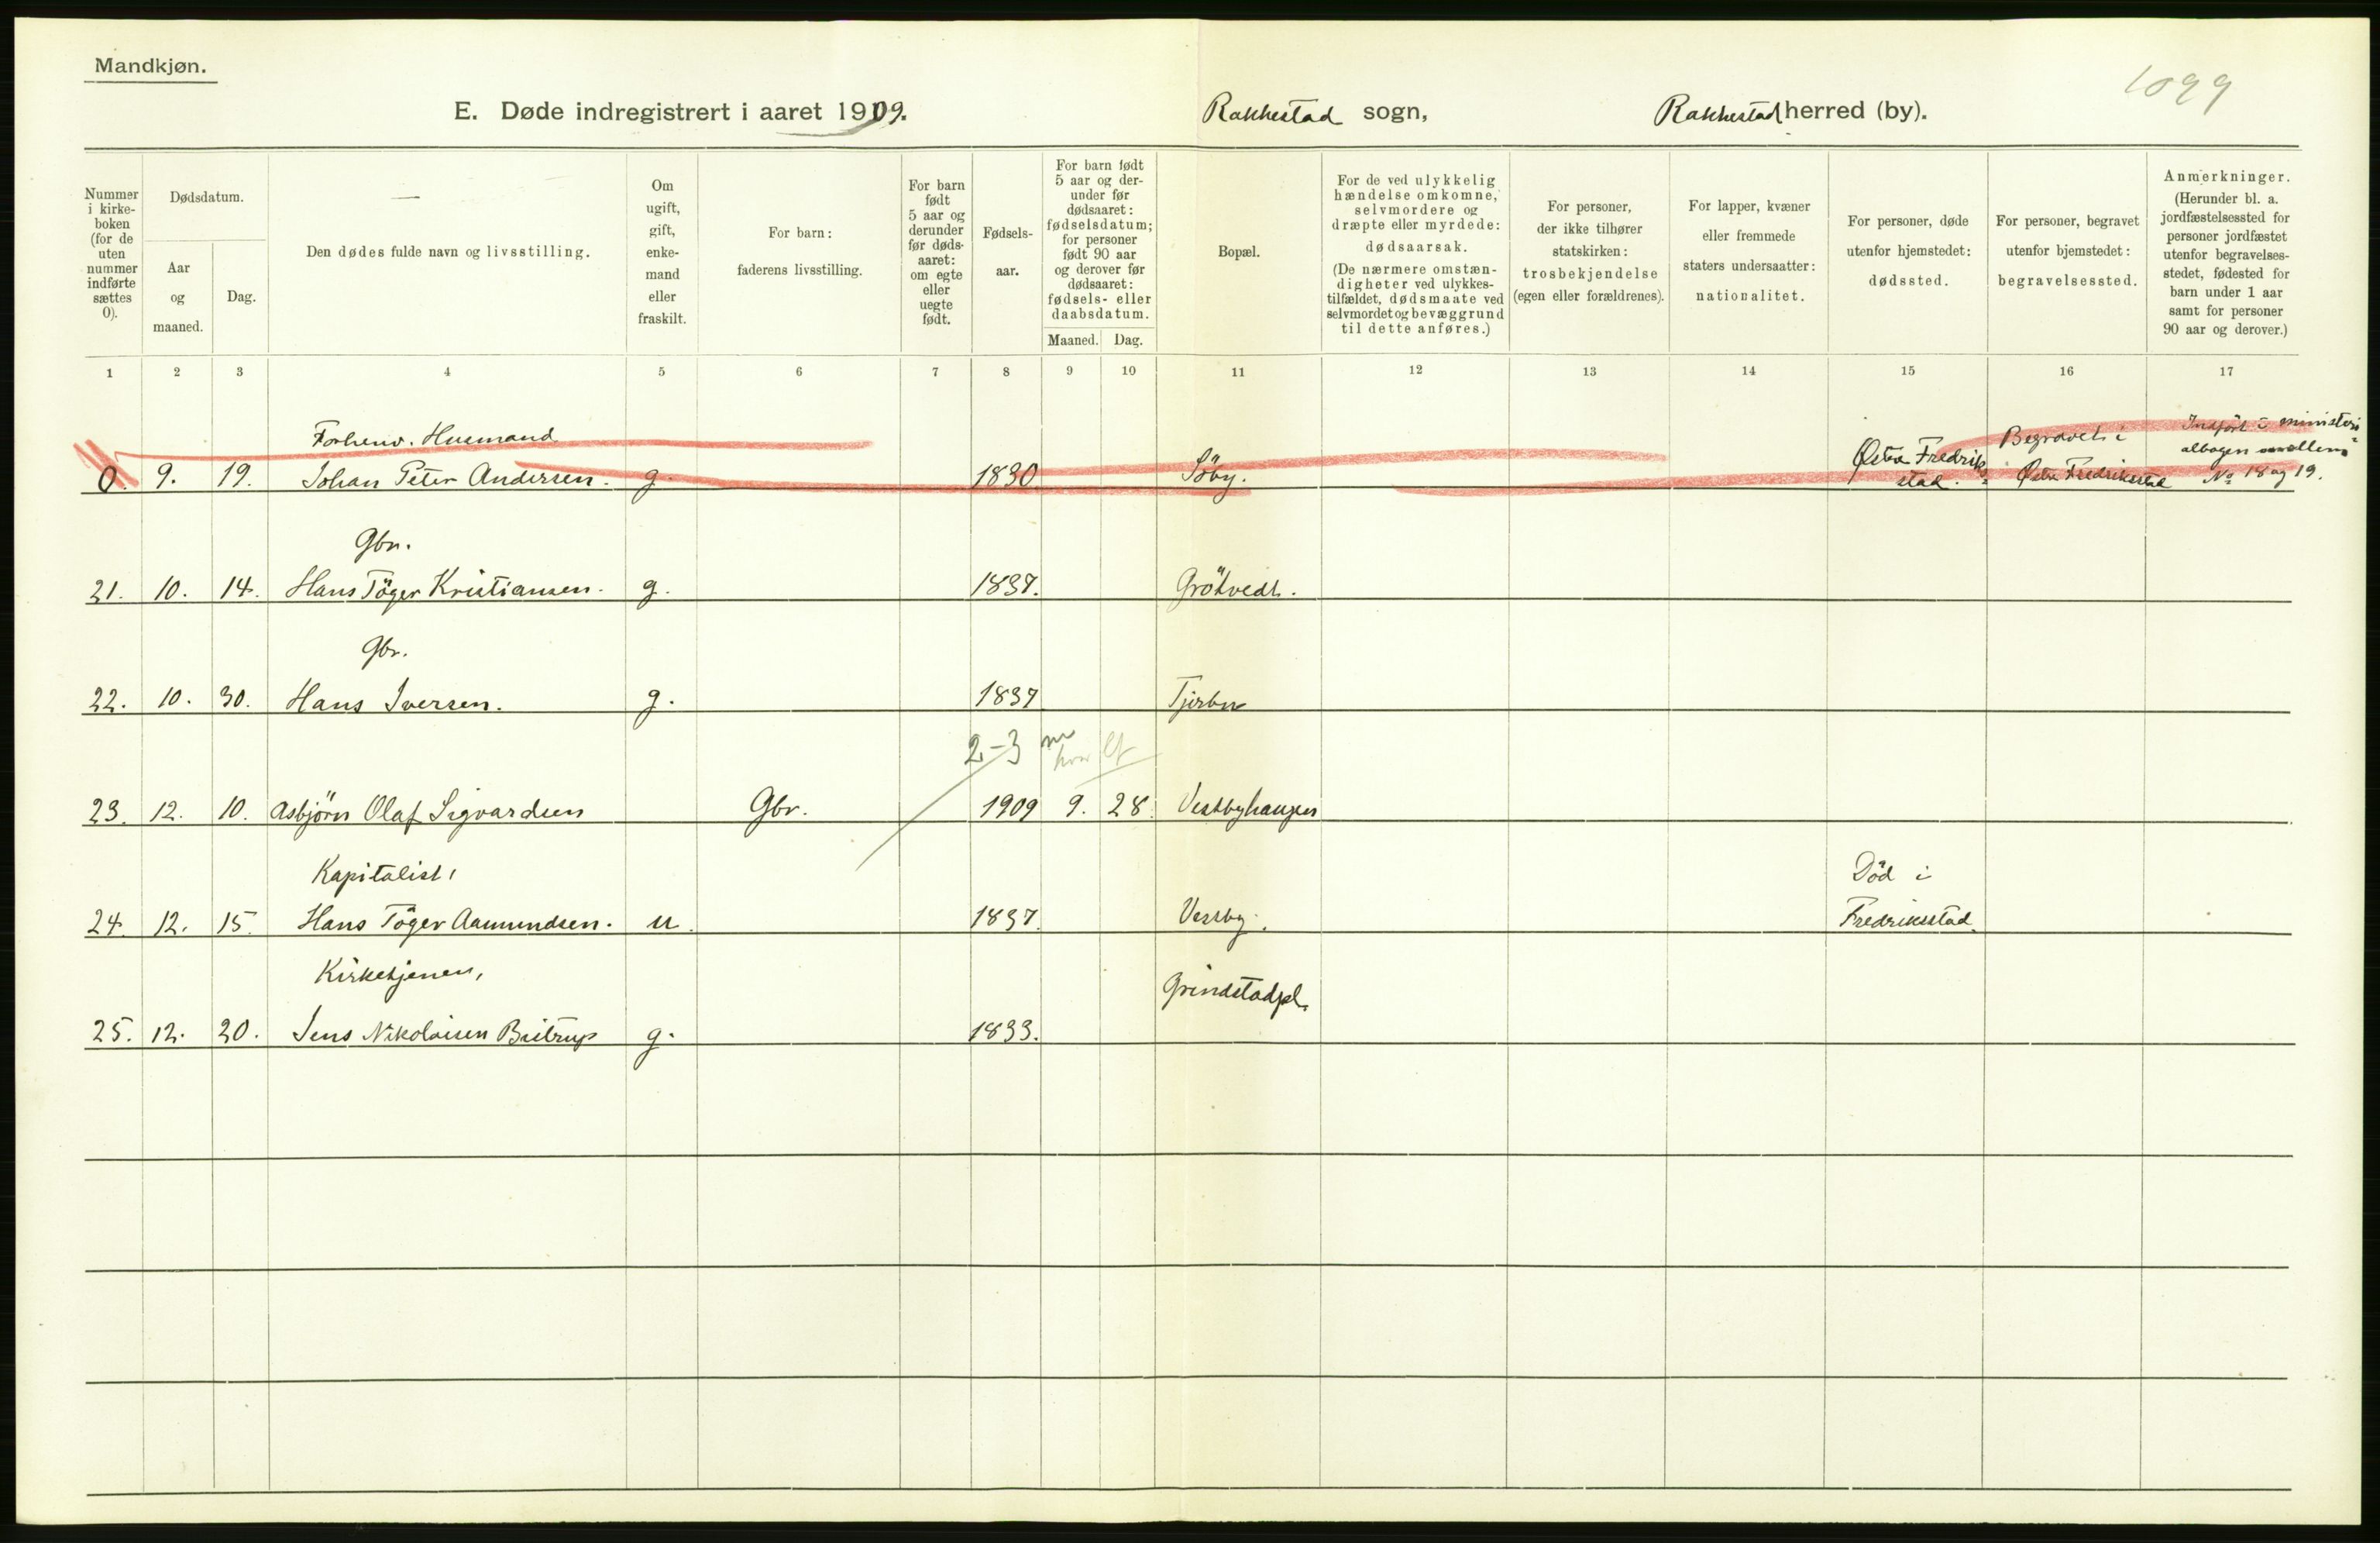 Mandkjøn.
1099
E. Døde indregistrert i aaret 1909. Rakkestad sogn, Rakkestad herred (by).
Nummer i kirke-boken (for de uten nummer indførte sættes 0).
Dødsdatum.
Aar og maaned.
Dag.
Den dødes fulde navn og livsstilling.
Om ugift, gift, enke-mand eller fraskilt.
For barn: faderens livsstilling.
For barn født 5 aar og derunder før døds-aaret: om egte eller uegte født.
Fødsels-aar.
For barn født 5 aar og der-under før dødsaaret: fødselsdatum; for personer født 90 aar og derover før dødsaaret: fødsels- eller daabsdatum.
Maaned. Dag.
Bopæl.
For de ved ulykkelig hændelse omkomne, selvmordere og dræpte eller myrdede: dødsaarsak. (De nærmere omstæn-digheter ved ulykkes-tilfældet, dødsmaate ved selvmordet og bevæggrund til dette anføres.)
For personer, der ikke tilhører statskirken: trosbekjendelse (egen eller forældrenes).
For lapper, kvæner eller fremmede staters undersaatter: nationalitet.
For personer, døde utenfor hjemstedet: dødssted.
For personer, begravet utenfor hjemstedet: begravelsessted.
Anmerkninger. (Herunder bl. a. jordfæstelsessted for personer jordfæstet utenfor begravelses-stedet, fødested for barn under 1 aar samt for personer 90 aar og derover.)
1 2 3 4 5 6 7 8 9 10 11 12 13 14 15 16 17
Forhenv. Husmand
Begravet i Indført i ministeri
Østre Fredrik- albogen mellem
0. 9. 19. Johan Peter Andersen. g. 1830 Söby. stad. Østre Fredrikstad No 18 og 19.
Gbr.
21. 10. 14. Hans Töger Kristiansen. g. 1837. Grötvedt.
Gbr.
22. 10. 30. Hans Iversen. g. 1837
2-3
23. 12. 10. Asbjörn Olaf Sigvardsen Gbr. 1909 9. 28. Vestbyhaugen
Kapitalist, Död i
24. 12. 15. Hans Töger Aamundsen. u. 1837. Vestby. Fredriksstad.
Kirketjener, Grindstadpl.
25. 12. 20. Jens Nikolaisen g. 1833.